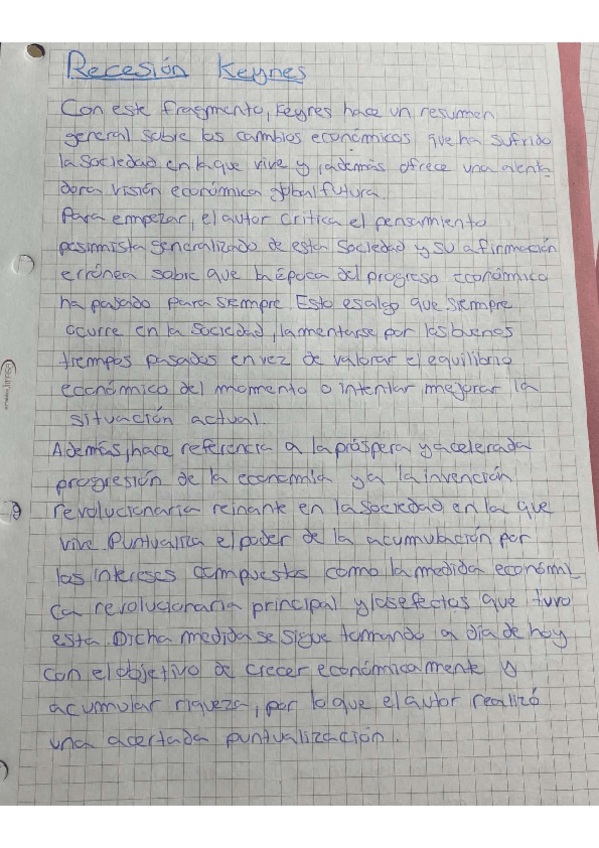 Recesión Keynes
Con este fragmento, Keynes hace un resumen
general sobre los cambios económicos que ha sufrido
la sociedad en la que vive y, además ofrece una alenta
dora visión económica global futura.
Para empezar, el autor critica el pensamiento
pesimista generalizado de esta sociedad y su afirmación
errónea sobre que la época del progreso económico
ha pasado para siempre. Esto es algo que siempre
ocurre en la sociedad, lamentarse por los buenos
tiempos pasados en vez de valorar el equilibrio
económico del momento o intentar mejorar la
situación actual.
Además, hace referencia a la próspera y acelerada
progresión de la economía y a la invención
revolucionaria reinante en la sociedad en la que
vive. Puntualiza el poder de la acumulación por
los intereses compuestos como la medida económi
ca revolucionaria principal y los efectos que tuvo
esta. Dicha medida se sigue tomando a día de hoy
con el objetivo de crecer económicamente y
acumular riqueza, por lo que el autor realizó
una acertada puntualización.